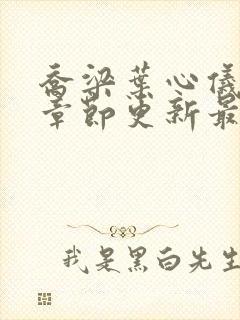 乔梁葉心儀
章節更新最
我是黑白先生